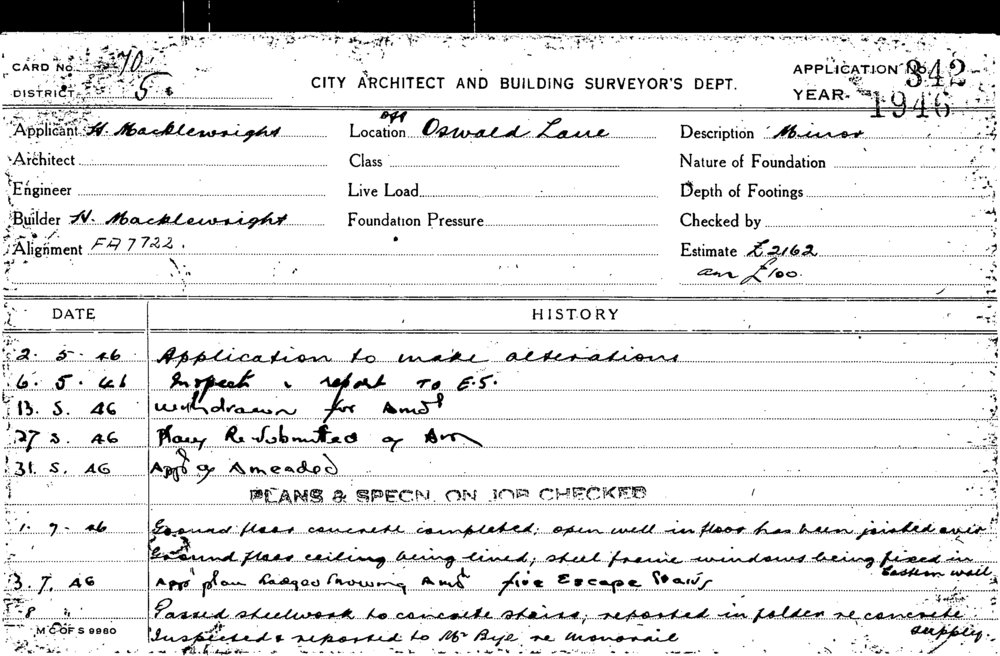 CARD No. 70
DISTRICT 5.
CITY ARCHITECT AND BUILDING SURVEYOR'S DEPT.
APPLICATION No. 342
YEAR- 1946
Applicant H. Macklewright
Location off Oswald Lane
Description Minor
Architect
Class
Nature of Foundation
Engineer
Live Load
Depth of Footings
Builder H. Macklewright
Foundation Pressure
Checked by
Alignment FA7722.
Estimate £2162
am £100.
DATE HISTORY
2. 5. 46 Application to make alterations
6. 5. 46 Inspect & report to E.S.
13. 5. 46 withdrawn for Amdt
27 5. 46 Plans Resubmitted as Am
31. 5. 46 Appd as Amended
PLANS & SPECN. ON JOB CHECKED
1. 7. 46 Ground floor concrete completed; open well in floor has been joisted over
Ground floor ceiling being lined; steel frame windows being fixed in
Eastern wall
3. 7. 46 App plan lodged showing Amdt fire Escape Stairs
8 " Passed steelwork to concrete stairs; reported in folder re concrete
supply.
M C OF S 9980 Inspected & reported to Mr Bye re monorail